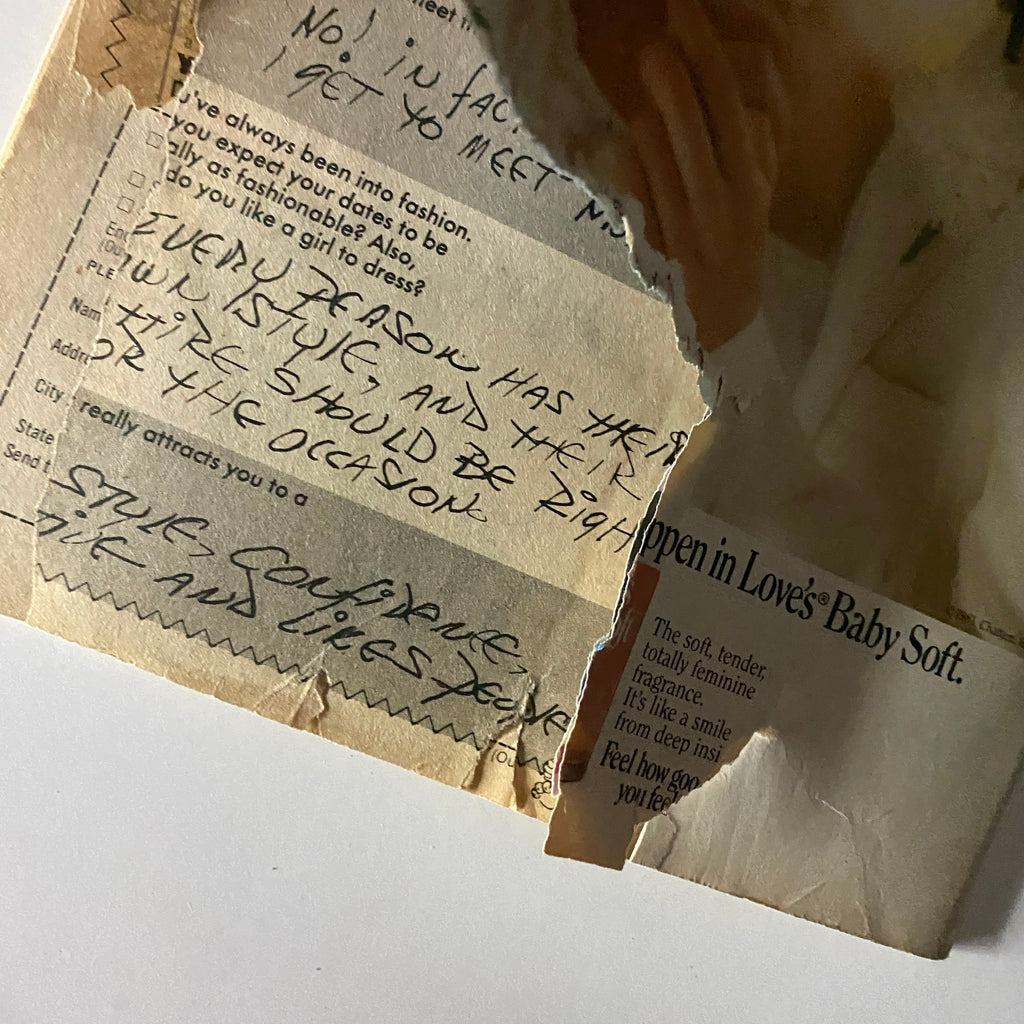 meet
NO! IN FAC
I GET YO MEET
u've always been into fashion.
you expect your dates to be
ally as fashionable? Also,
do you like a girl to dress?
EVERY PEASON HAS THEIR
OWN STYLE, AND THEIR
TTIRE SHOULD BE RIGH
OR THE OCCASION.
really attracts you to a
STYLE, CONFIDENCE,
AND LIKES PEOPLE
PLE
Nam
Addre
City
State
Send t
ppen in Love's® Baby Soft.
The soft, tender,
totally feminine
fragrance.
It's like a smile
from deep insi
Feel how goo
you feel